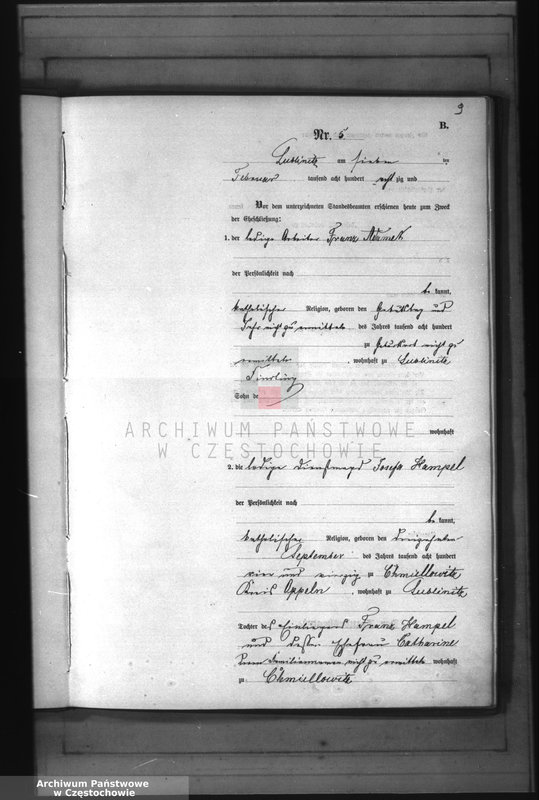 9
B.
Nr. 5
Lublinitz am sieben ten
Februar tausend acht hundert acht zig und
Vor dem unterzeichneten Standesbeamten erschienen heute zum Zweck
der Eheschließung:
1. der ledige Arbeiter Franz Adamek
der Persönlichkeit nach
be kannt,
katholischer Religion, geboren den Geburtstag und
Jahr nicht zu ermitteln des Jahres tausend acht hundert
zu Geburtsort nicht zu
ermitteln, wohnhaft zu Lublinitz
Findling
Sohn de
ARCHIWUM PAŃSTWOWE
W CZĘSTOCHOWIE
wohnhaft
2. die ledige Dienstmagd Josefa Hampel
der Persönlichkeit nach
be kannt,
katholischer Religion, geboren den dreizehnten
September des Jahres tausend acht hundert
vier und vierzig zu Chmiellowitz
Kreis Oppeln, wohnhaft zu Lublinitz
Tochter des Einliegers Franz Hampel
und dessen Ehefrau Catharine
deren Familienname nicht zu ermitteln wohnhaft
zu Chmiellowitz
Archiwum Państwowe
w Częstochowie